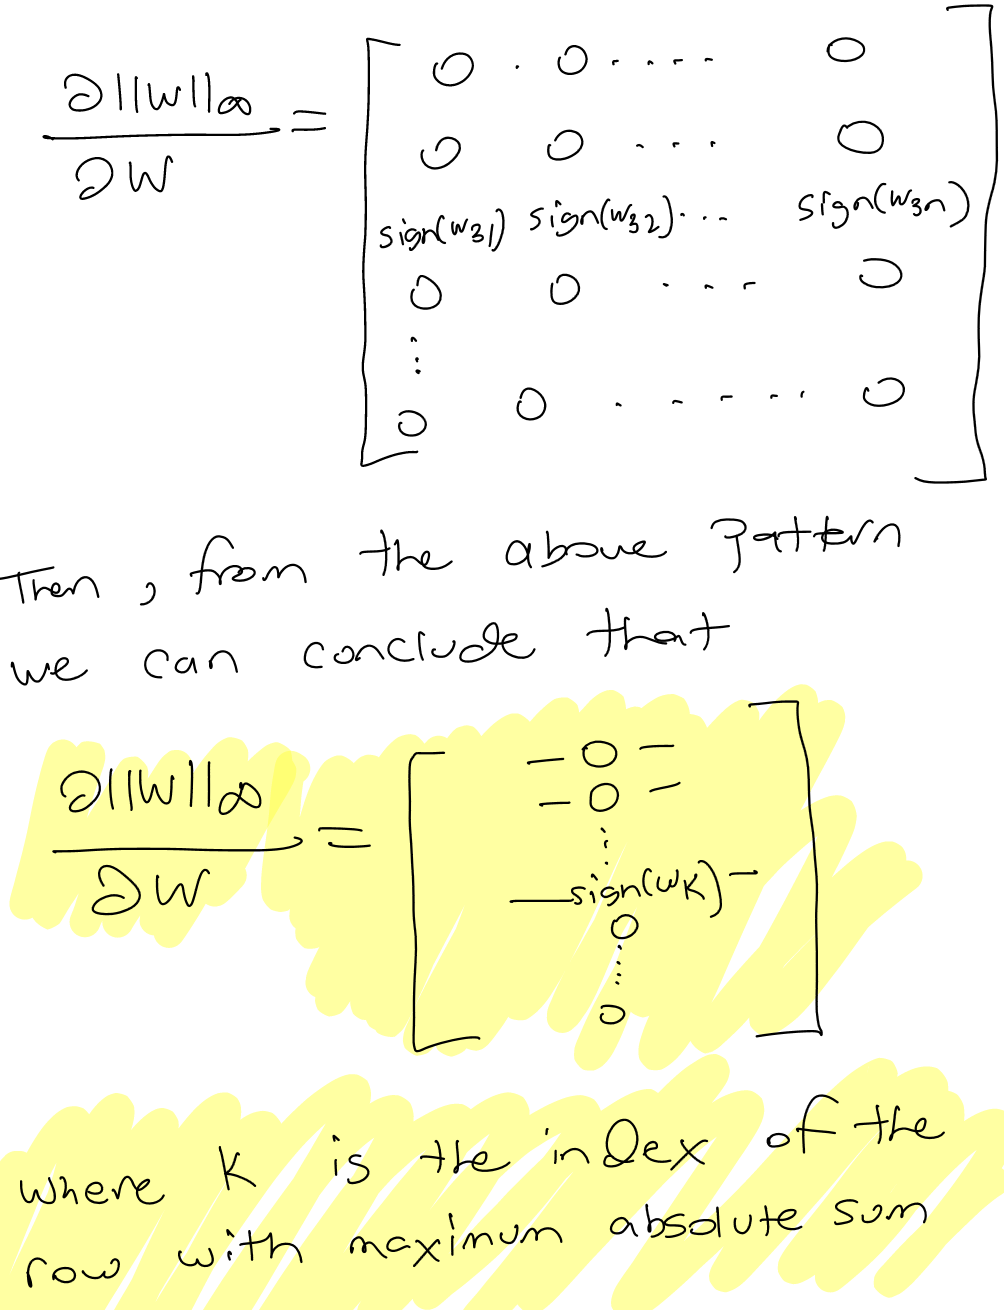 ∂||W||∞ / ∂W = [ 0 . 0 . . . . 0
0 0 . . . 0
sign(w31) sign(w32) . . . sign(w3n)
0 0 . . . 0
⋮
0 0 . . . . . . 0 ]
Then, from the above pattern
we can conclude that
∂||W||∞ / ∂W = [ — 0 —
— 0 —
⋮
— sign(wK) —
0
⋮
0 ]
where K is the index of the
row with maximum absolute sum